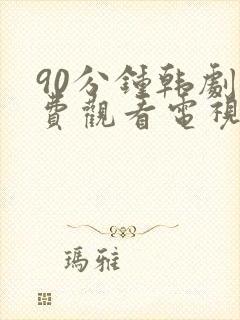 90分鍾韩劇
費觀看電視
瑪雅